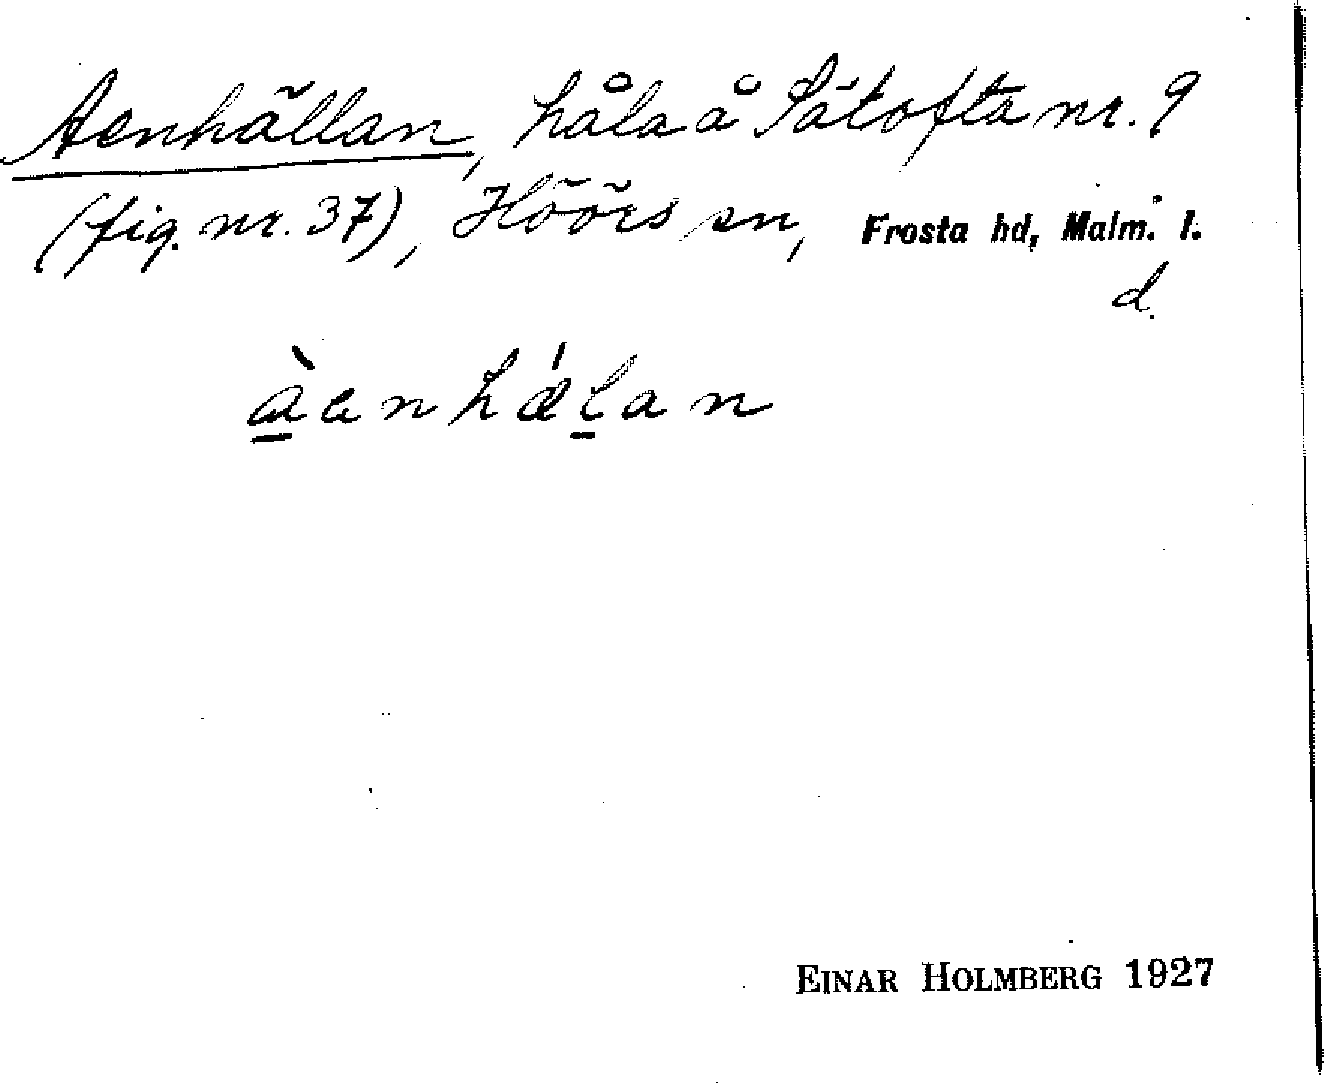 Aenhällan, håla å Sätofta nr. 9
(fig. nr. 37), Höörs sn, Frosta hd, Malm. l.
d.
àenhǽlan
EINAR HOLMBERG 1927